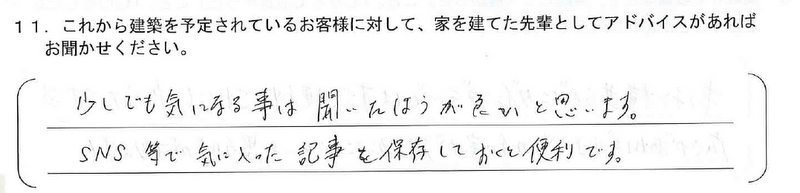 11．これから建築を予定されているお客様に対して、家を建てた先輩としてアドバイスがあれば
お聞かせください。
少しでも気になる事は聞いたほうが良いと思います。
SNS等で気に入った記事を保存しておくと便利です。